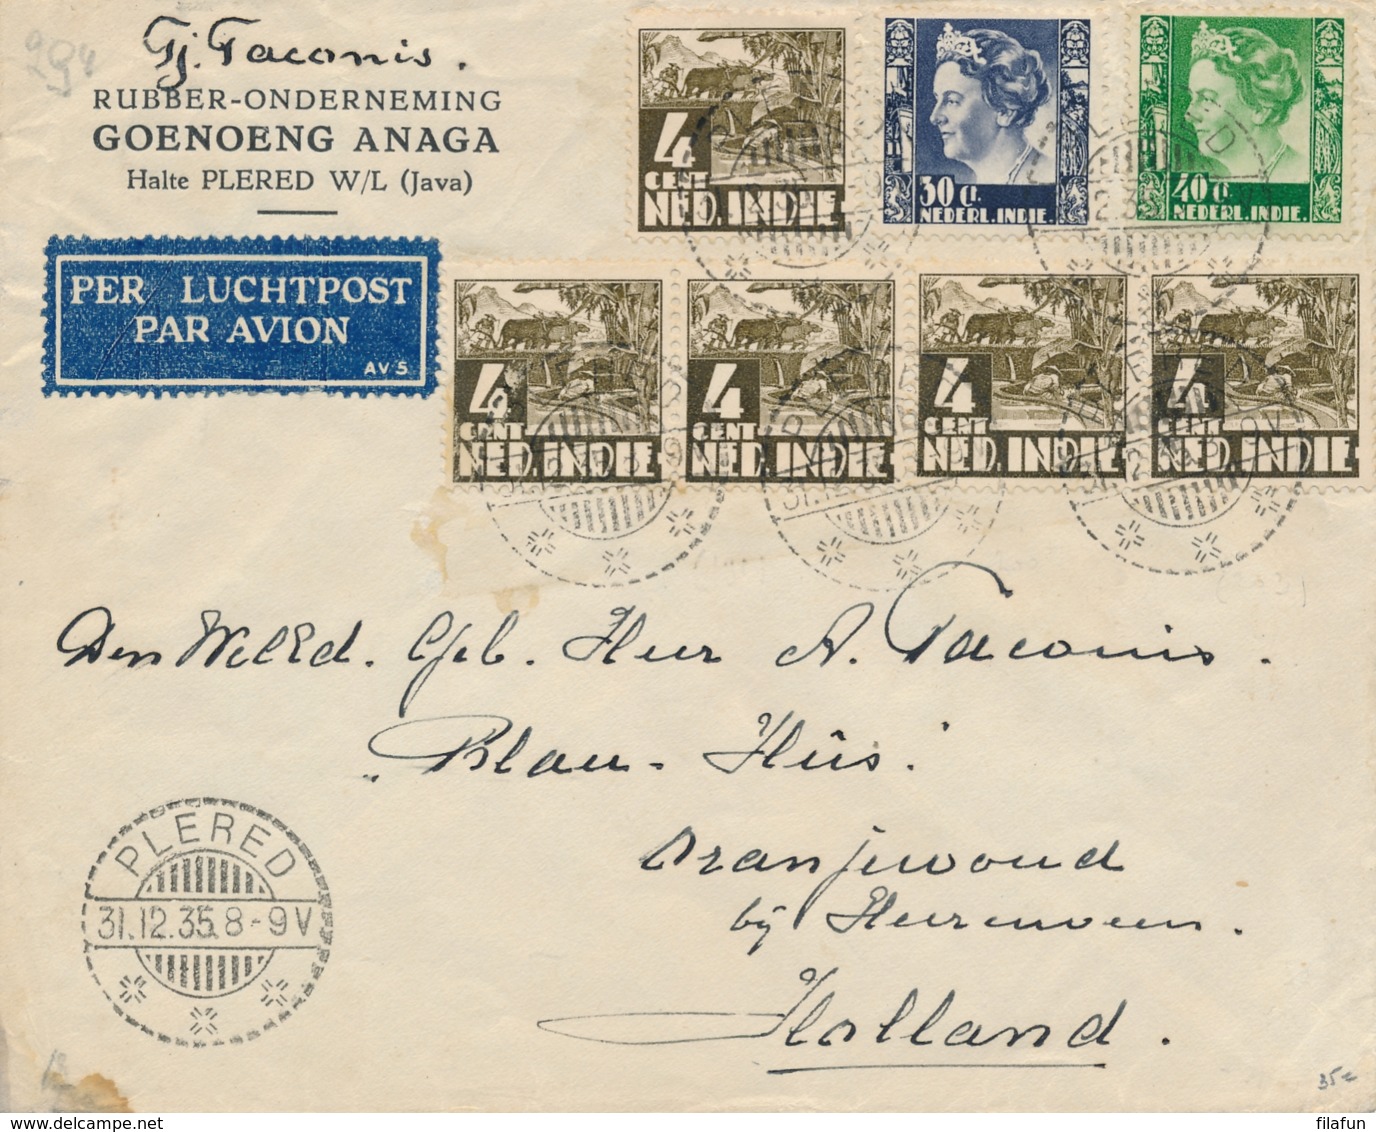 294
Tj. Taconis.
RUBBER-ONDERNEMING
GOENOENG ANAGA
Halte PLERED W/L (Java)
PER LUCHTPOST
PAR AVION
AVS
4
CENT
NED. INDIE
30 Ct.
NEDERL. INDIE.
40 Ct.
NEDERL. INDIE.
4
CENT
NED. INDIE
4
CENT
NED. INDIE
4
CENT
NED. INDIE
4
CENT
NED. INDIE
Den WelEd. Geb. Heer A. Taconis.
"Blau-Hûs".
Oranjewoud
bij Heerenveen.
Holland.
PLERED
31.12.35.8-9V
35=
filafun